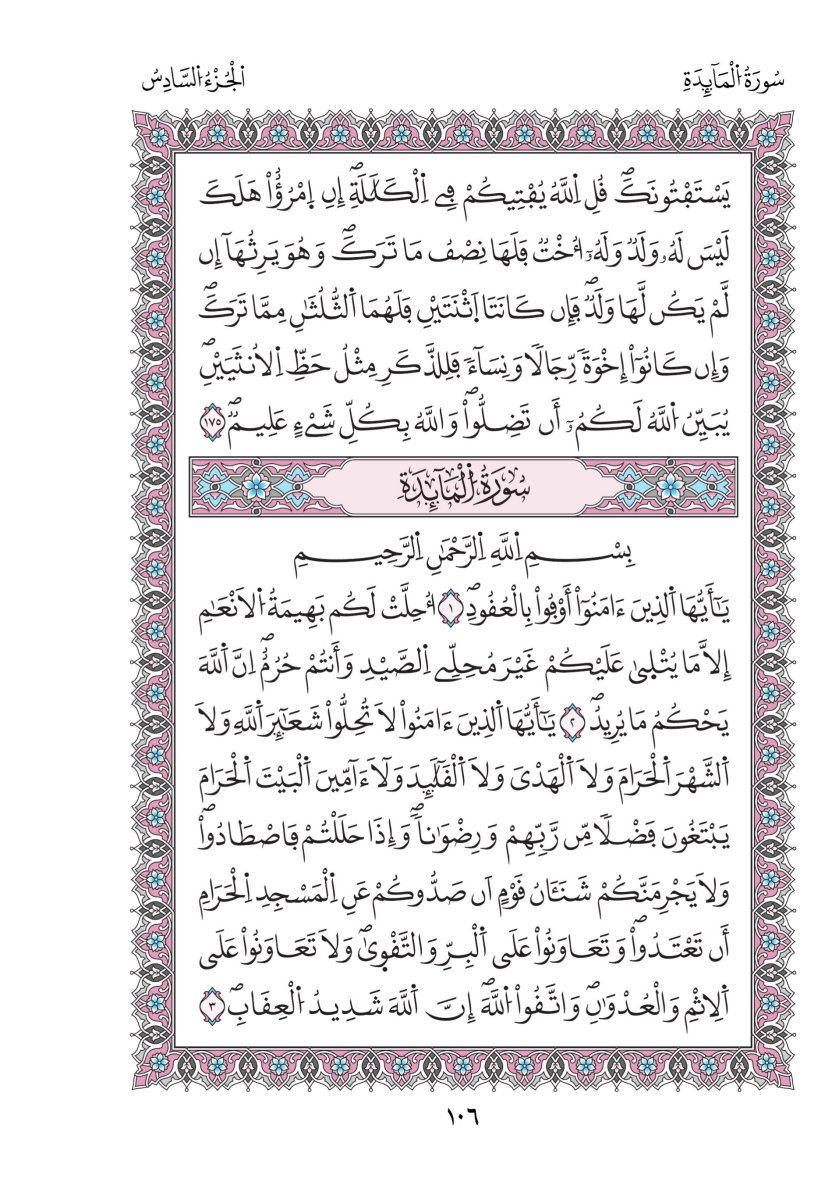 سُورَةُ الْمَآئِدَةِ
الْجُزْءُ السَّادِسُ
يَسْتَفْتُونَكَۖ قُلِ اِ۬للَّهُ يُفْتِيكُمْ فِے اِ۬لْكَلَٰلَةِۖ إِنِ اِ۪مْرُؤٌاْ هَلَكَ
لَيْسَ لَهُۥ وَلَدٞ وَلَهُۥٓ أُخْتٞ فَلَهَا نِصْفُ مَا تَرَكَۖ وَهُوَ يَرِثُهَآ إِن
لَّمْ يَكُن لَّهَا وَلَدٞۖ فَإِن كَانَتَا اَ۪ثْنَتَيْنِ فَلَهُمَا اَ۬لثُّلُثَٰنِ مِمَّا تَرَكَۖ
وَإِن كَانُوٓاْ إِخْوَةٗ رِّجَالٗا وَنِسَآءٗ فَلِلذَّكَرِ مِثْلُ حَظِّ اِ۬لُانثَيَيْنِۖ
يُبَيِّنُ اُ۬للَّهُ لَكُمُۥٓ أَن تَضِلُّواْۖ وَاللَّهُ بِكُلِّ شَےْءٍ عَلِيمٞۖ ١٧٥
سُورَةُ الْمَآئِدَةِ
بِسْمِ اِ۬للَّهِ اِ۬لرَّحْمَٰنِ اِ۬لرَّحِيمِ
يَٰٓأَيُّهَا اَ۬لذِينَ ءَامَنُوٓاْ أَوْفُواْ بِالْعُقُودِۖ ١ أُحِلَّتْ لَكُم بَهِيمَةُ اُ۬لَانْعَٰمِ
إِلَّا مَا يُتْلَىٰ عَلَيْكُمْ غَيْرَ مُحِلِّے اِ۬لصَّيْدِ وَأَنتُمْ حُرُمٌۖ اِنَّ اَ۬للَّهَ
يَحْكُمُ مَا يُرِيدُۖ ٢ يَٰٓأَيُّهَا اَ۬لذِينَ ءَامَنُواْ لَا تُحِلُّواْ شَعَٰٓئِرَ اَ۬للَّهِ وَلَا
اَ۬لشَّهْرَ اَ۬لْحَرَامَ وَلَا اَ۬لْهَدْيَ وَلَا اَ۬لْقَلَٰٓئِدَ وَلَآ ءَآمِّينَ اَ۬لْبَيْتَ اَ۬لْحَرَامَ
يَبْتَغُونَ فَضْلٗا مِّن رَّبِّهِمْ وَرِضْوَٰناٗۖ وَإِذَا حَلَلْتُمْ فَاصْطَادُواْۖ
وَلَا يَجْرِمَنَّكُمْ شَنَـَٔانُ قَوْمٍ اَن صَدُّوكُمْ عَنِ اِ۬لْمَسْجِدِ اِ۬لْحَرَامِ
أَن تَعْتَدُواْۖ وَتَعَاوَنُواْ عَلَى اَ۬لْبِرِّ وَالتَّقْوۭىٰۖ وَلَا تَعَاوَنُواْ عَلَى
اَ۬لِاثْمِ وَالْعُدْوَٰنِۖ وَاتَّقُواْ اُ۬للَّهَۖ إِنَّ اَ۬للَّهَ شَدِيدُ اُ۬لْعِقَابِۖ ٣
١٠٦